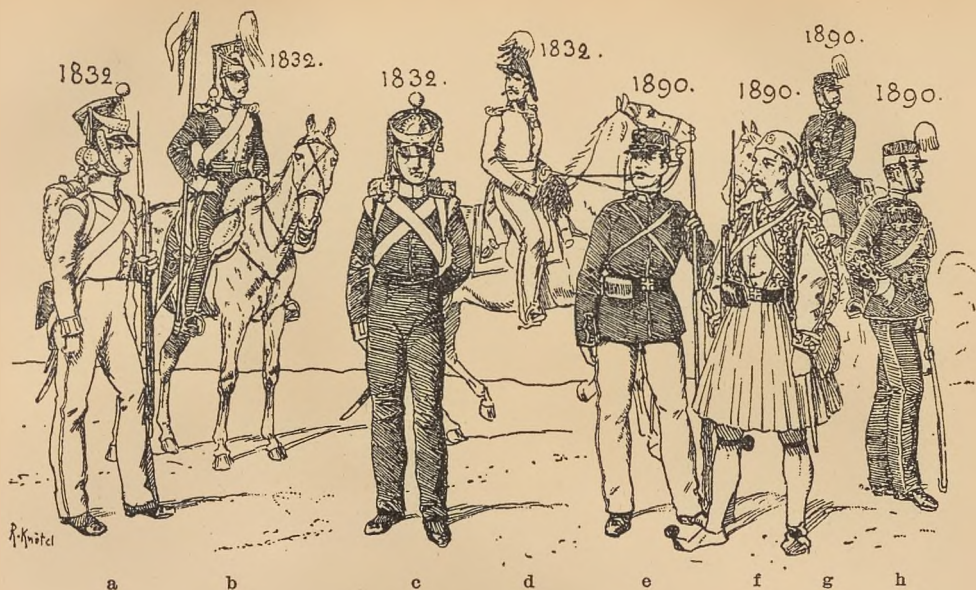 1832.
1832.
1832.
1832.
1890.
1890.
1890.
1890.
R. Knötel
a b c d e f g h